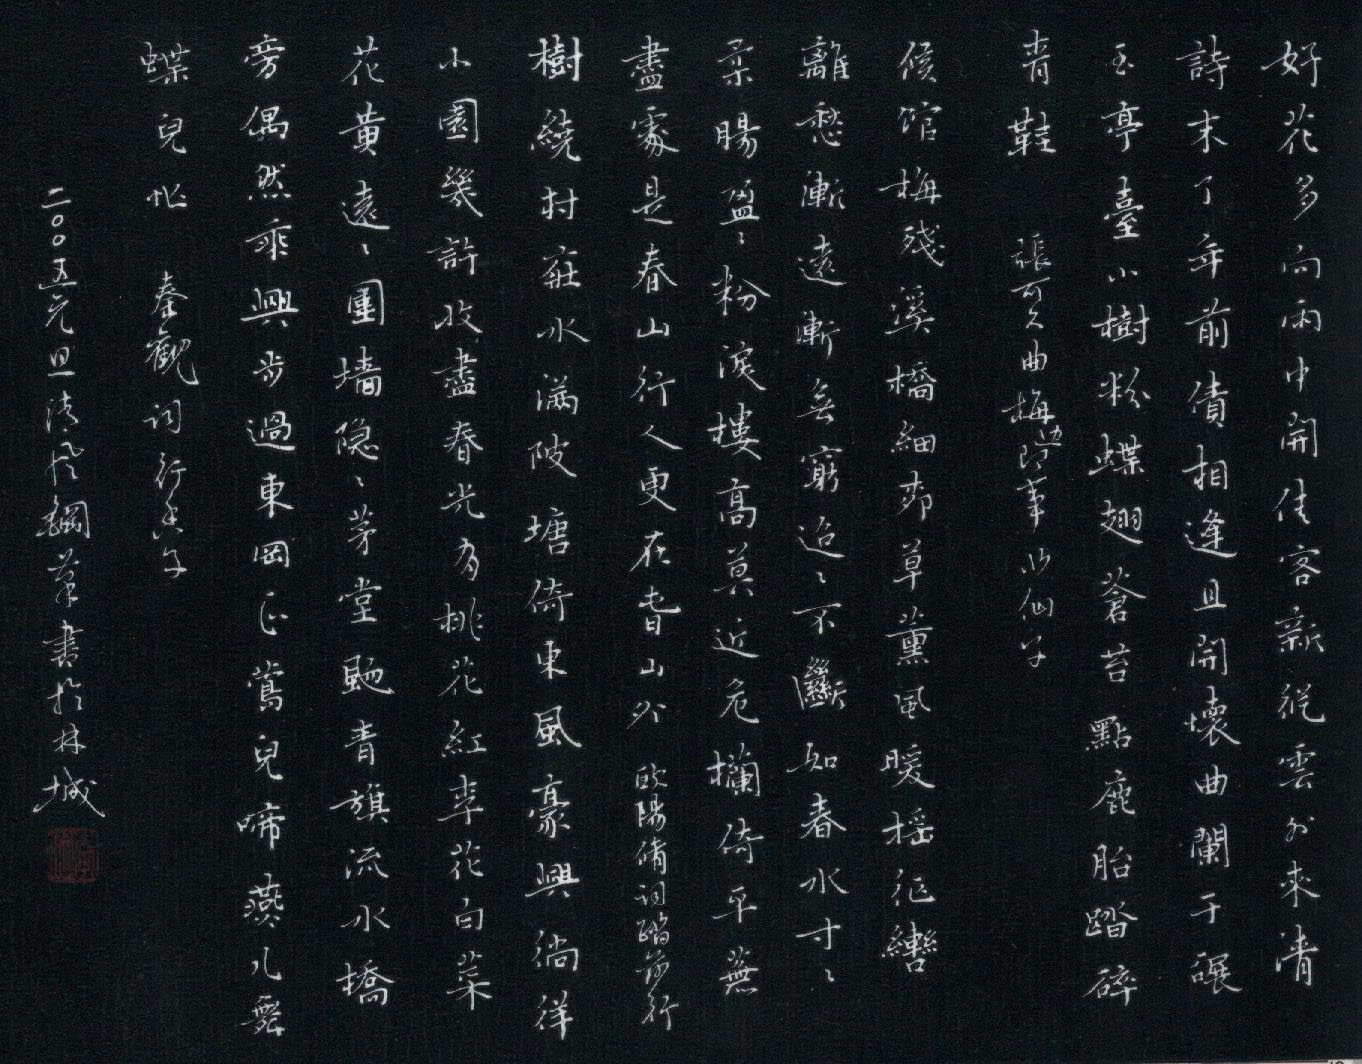 好花多向雨中開佳客新從雲外來清
詩未了年前債相逢且開壞曲闌干碾
玉亭臺小樹粉蝶翅蒼苔點鹿胎踏碎
青鞋 張可久曲梅邊即事 水仙子
候馆梅殘溪橋細柳草薰風暖摇征轡
離愁漸遠漸無窮迢〻不斷如春水寸〻
柔腸盈〻粉淚樓高莫近危欄倚平蕪
盡處是春山行人更在春山外 欧陽脩词踏莎行
樹繞村莊水滿陂塘倚東風豪興徜徉
小園幾許收盡春光有桃花紅李花白菜
花黄遠〻圍墙隐〻茅堂颺青旗流水橋
旁偶然乘興步過東岡正鶯兒啼燕儿舞
蝶兒忙 秦觀词行香子
二〇〇五元旦清风鋼筆書於林城